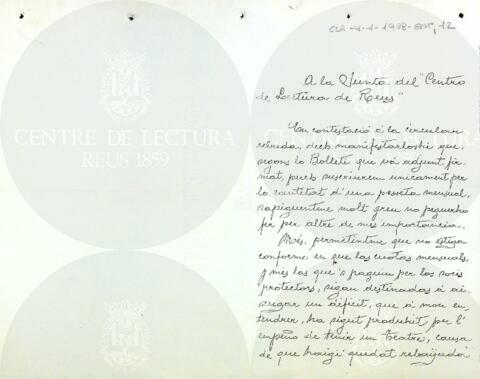 A la Junta del "Centro
de Lectura de Reus"
En contestació á la circular
rebuda, dech manifestarloshi que,
segons lo Bolletí que vá adjunt fir-
mat, puch suscriurem unicament per
la cantitat d'una pesseta mensual,
sapiguentme molt greu no poguerho
fer per altre de més importancia.
Més, permetintme que no estiga
conforme en que las cuotas mensuals,
y més las que 's pagum per los socis
protectors, sigan destinadas á ai-
xugar un déficit, que á mon en-
tendrer, ha sigut produhit per l'
empeño de tenir un Teatre, causa
de que haigi quedat rebaijada
CENTRE DE LECTURA
REUS 1859
CENTRE DE LECTURA
REUS 1859